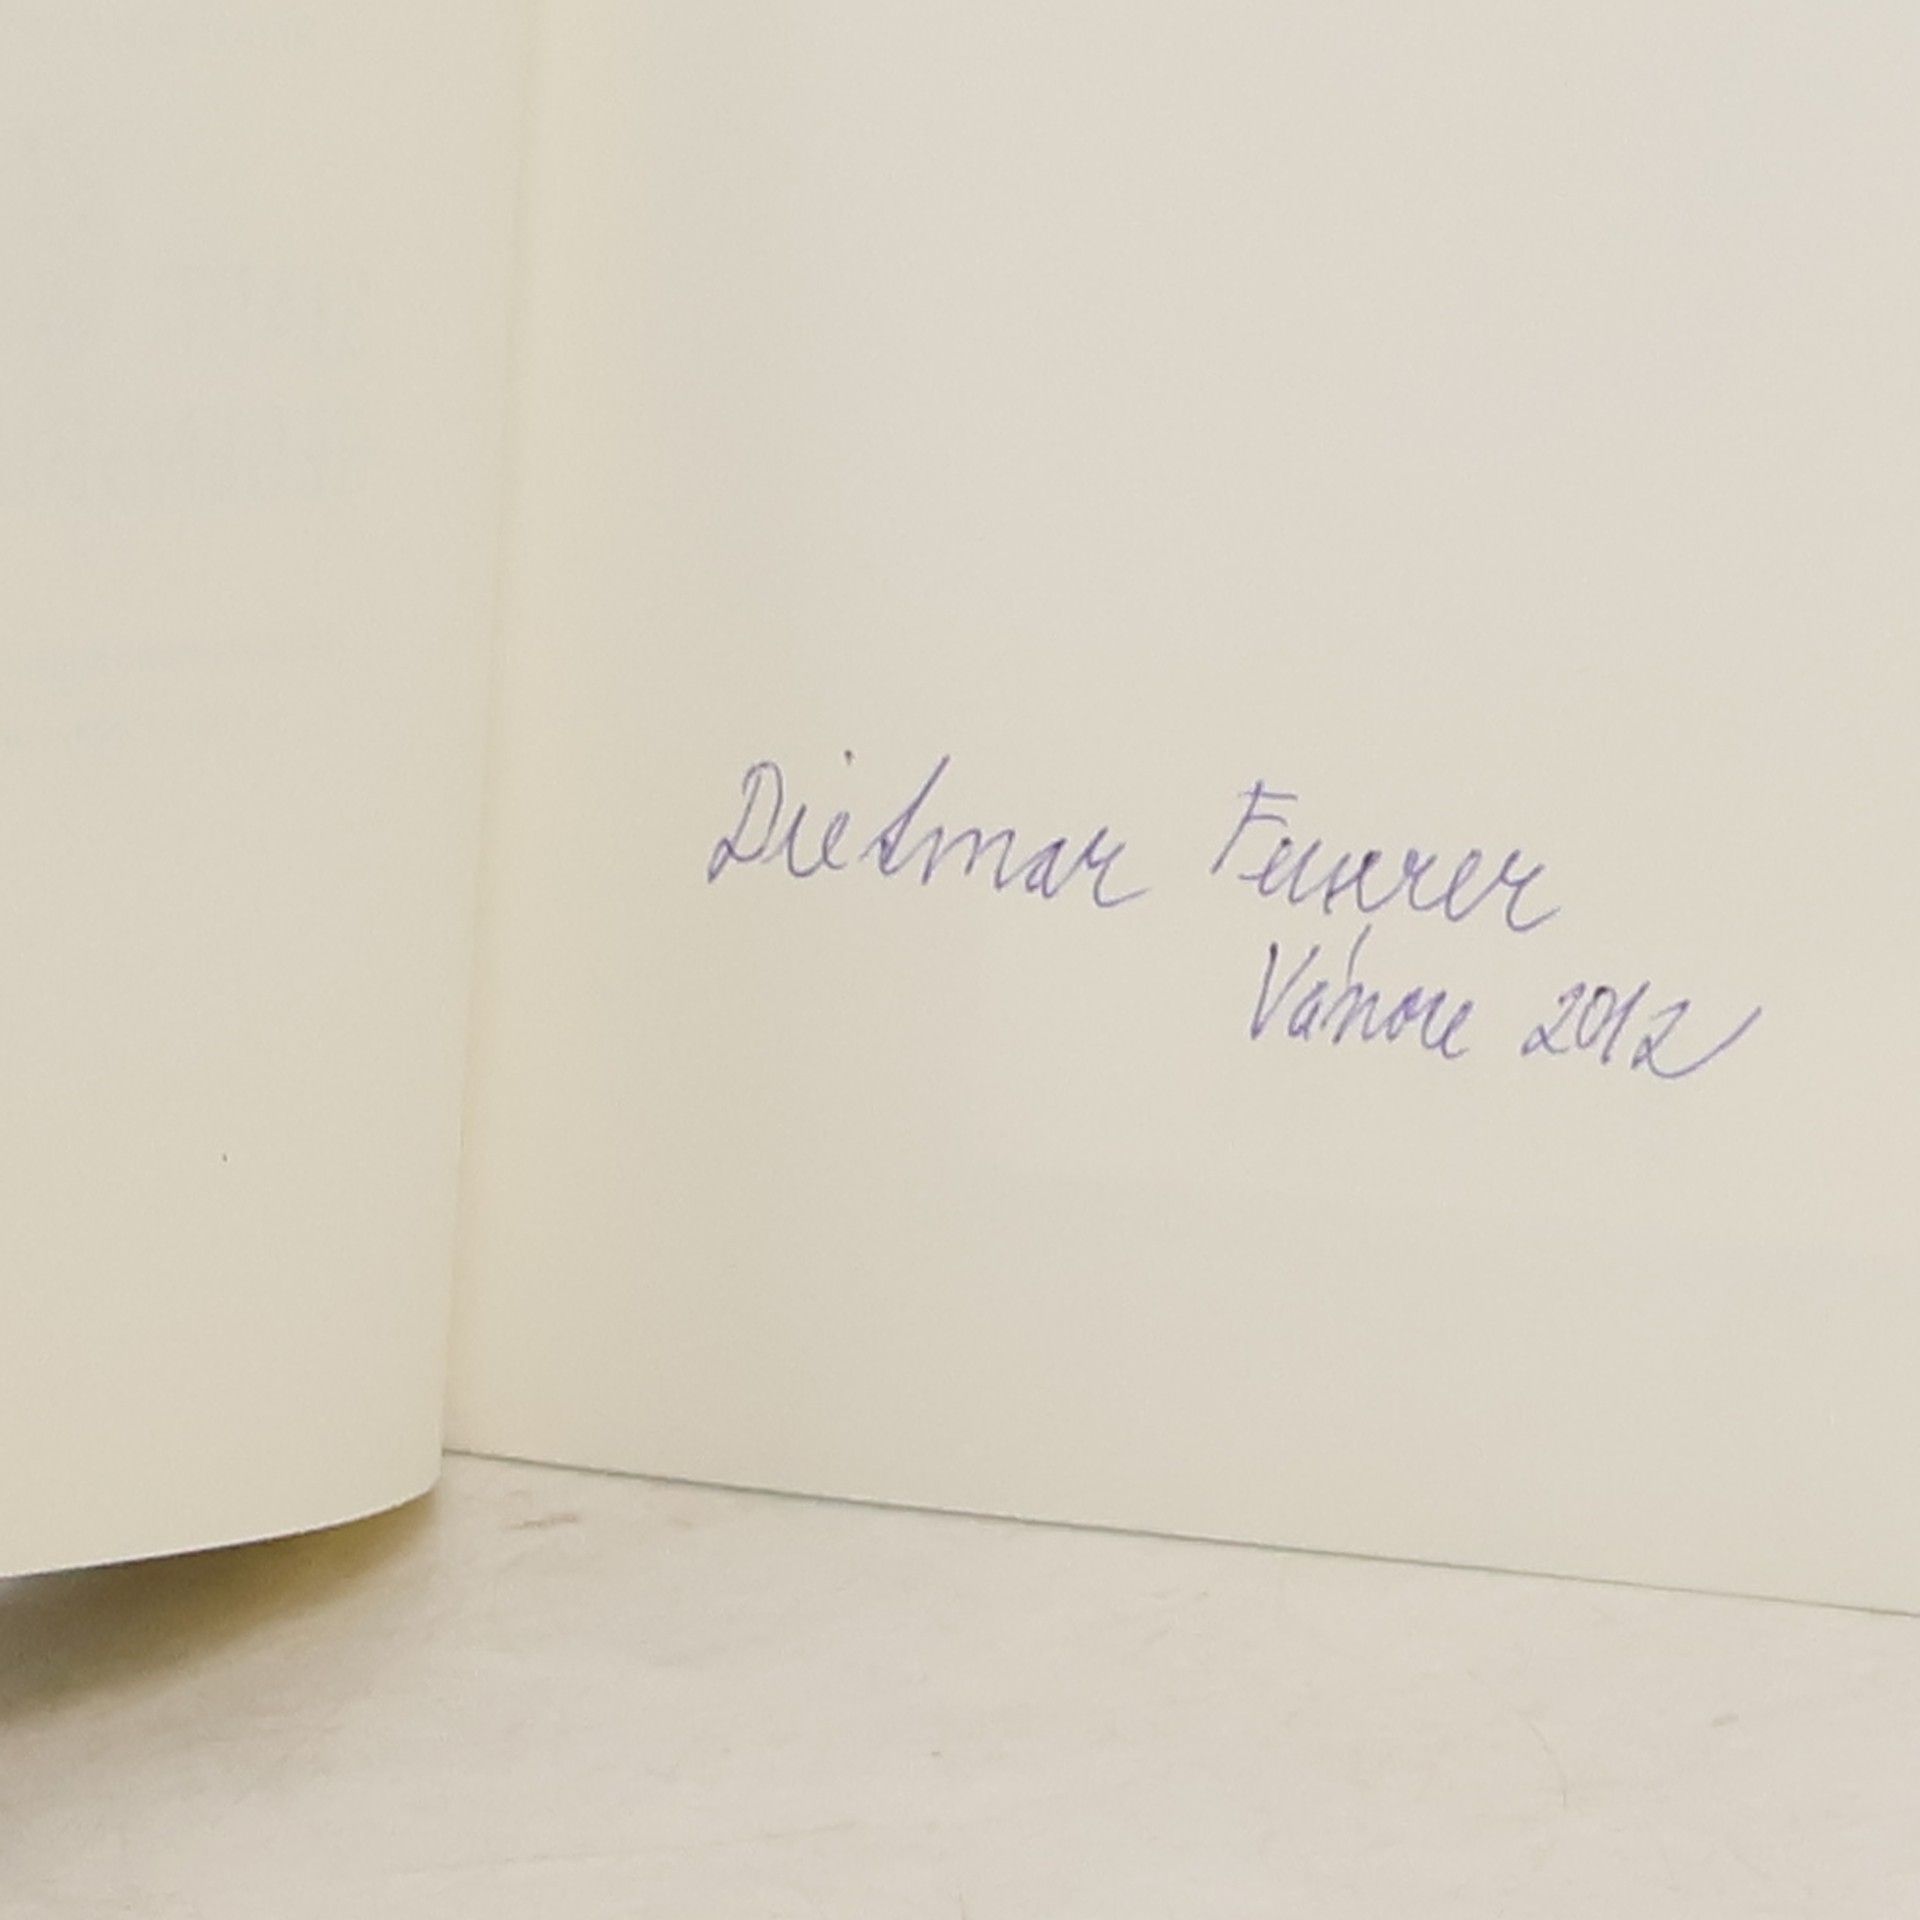 Dietmar Feurer
Vánoce 2012